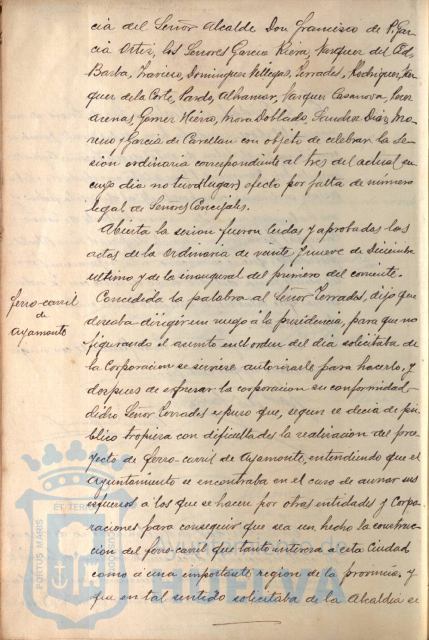 cia del Señor Alcalde Don Francisco de P. Gar-
cia Ortiz, los Señores Garcia Riera, Vazquez del Cid
Barba, Traviero, Dominguez Villegas, Terrades, Rodriguez, Vaz-
quez de la Corte, Pardo, Alhamar, Vazquez Casanova, Perez
arenas, Gomez Hierro, Mora Doblado, Sanchez Diaz, Mo-
reno y Garcia de Cavellan con objeto de celebrar la se-
sion ordinaria correspondiente al tres del actual en
cuyo dia no tuvo (lugar) efecto por falta de número
legal de Señores Concejales.
Abierta la sesion fueron leidas y aprobadas las
actas de la ordinaria de veinte y nueve de Diciembre
ultimo y de la inaugural del primero del corriente.
ferro-carril
de
Ayamonte
Concedida la palabra al Señor Terrades, dijo que
deseaba dirigir un ruego á la presidencia, para que no
figurando el asunto en el orden del dia solicitaba de
la Corporacion se sirviese autorizarle para hacerlo, y
despues de expresar la corporacion su conformidad
dicho Señor Terrades expuso que, segun se decia de pú-
blico tropieza con dificultades la realizacion del pro-
yecto de ferro-carril de Ayamonte, entendiendo que el
Ayuntamiento se encontraba en el caso de aunar sus
esfuerzos á los que se hacen por otras entidades y Corpo-
raciones para conseguir que sea un hecho la construc-
cion del ferro-carril que tanto interesa á esta Ciudad
como á una importante region de la provincia. y
que en tal sentido solicitaba de la Alcaldia se
PORTUS MARIS
ET TERRAE
CUSTODIA
Ayuntamiento de
HUELVA